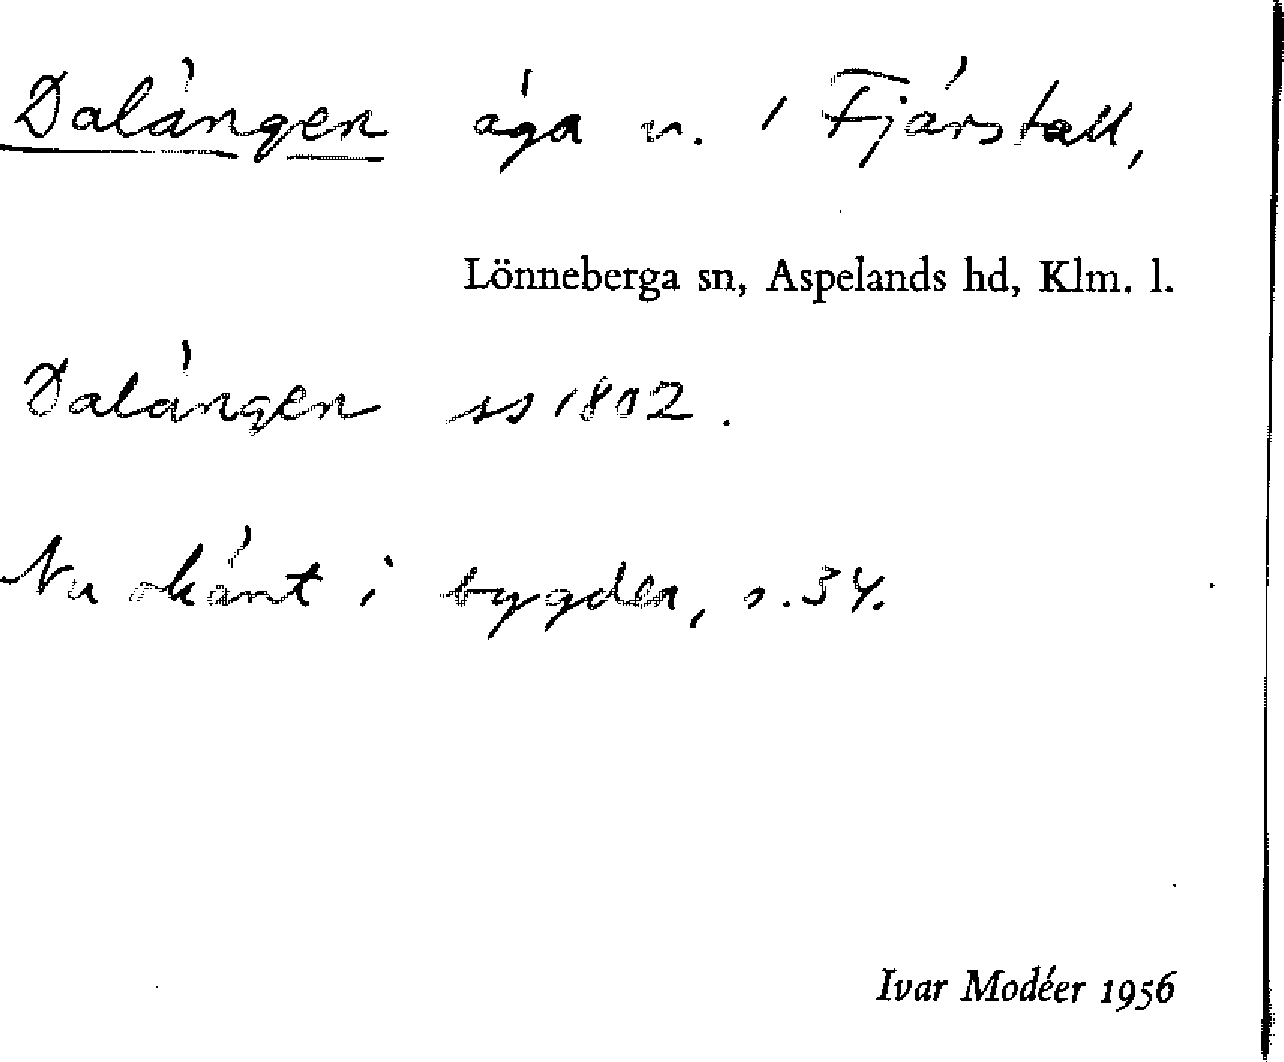 Dalängen äga n. i Fjärstall,
Lönneberga sn, Aspelands hd, Klm. l.
Dalängen ss 1802.
Nu okänt i bygden, s. 34.
Ivar Modéer 1956